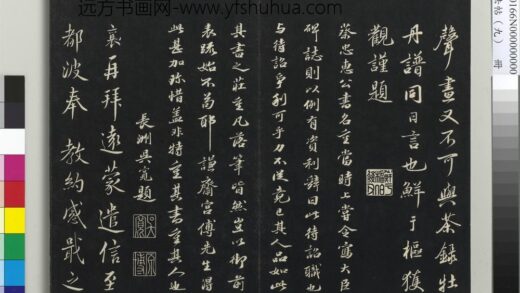 远方书画 www.yfshuhua.com
聲畫又不可與茶錄牡
丹譜同日言也鮮于樞獲
觀謹題
蔡忠惠公書名重當時上嘗令寫大臣
碑誌則以例有資利辭曰此待詔職也
與待詔爭利可乎力不從竟已其人品如此
其書之莊重凡落筆皆然豈以御前
表疏始不苟耶謙齋宮傅先生得
此甚加珍惜蓋非特重其書重其人也
長洲吳寬題
吳寬
原博
襄再拜遠蒙遣信至
都波奉 教約感戢之
帖（九） 册